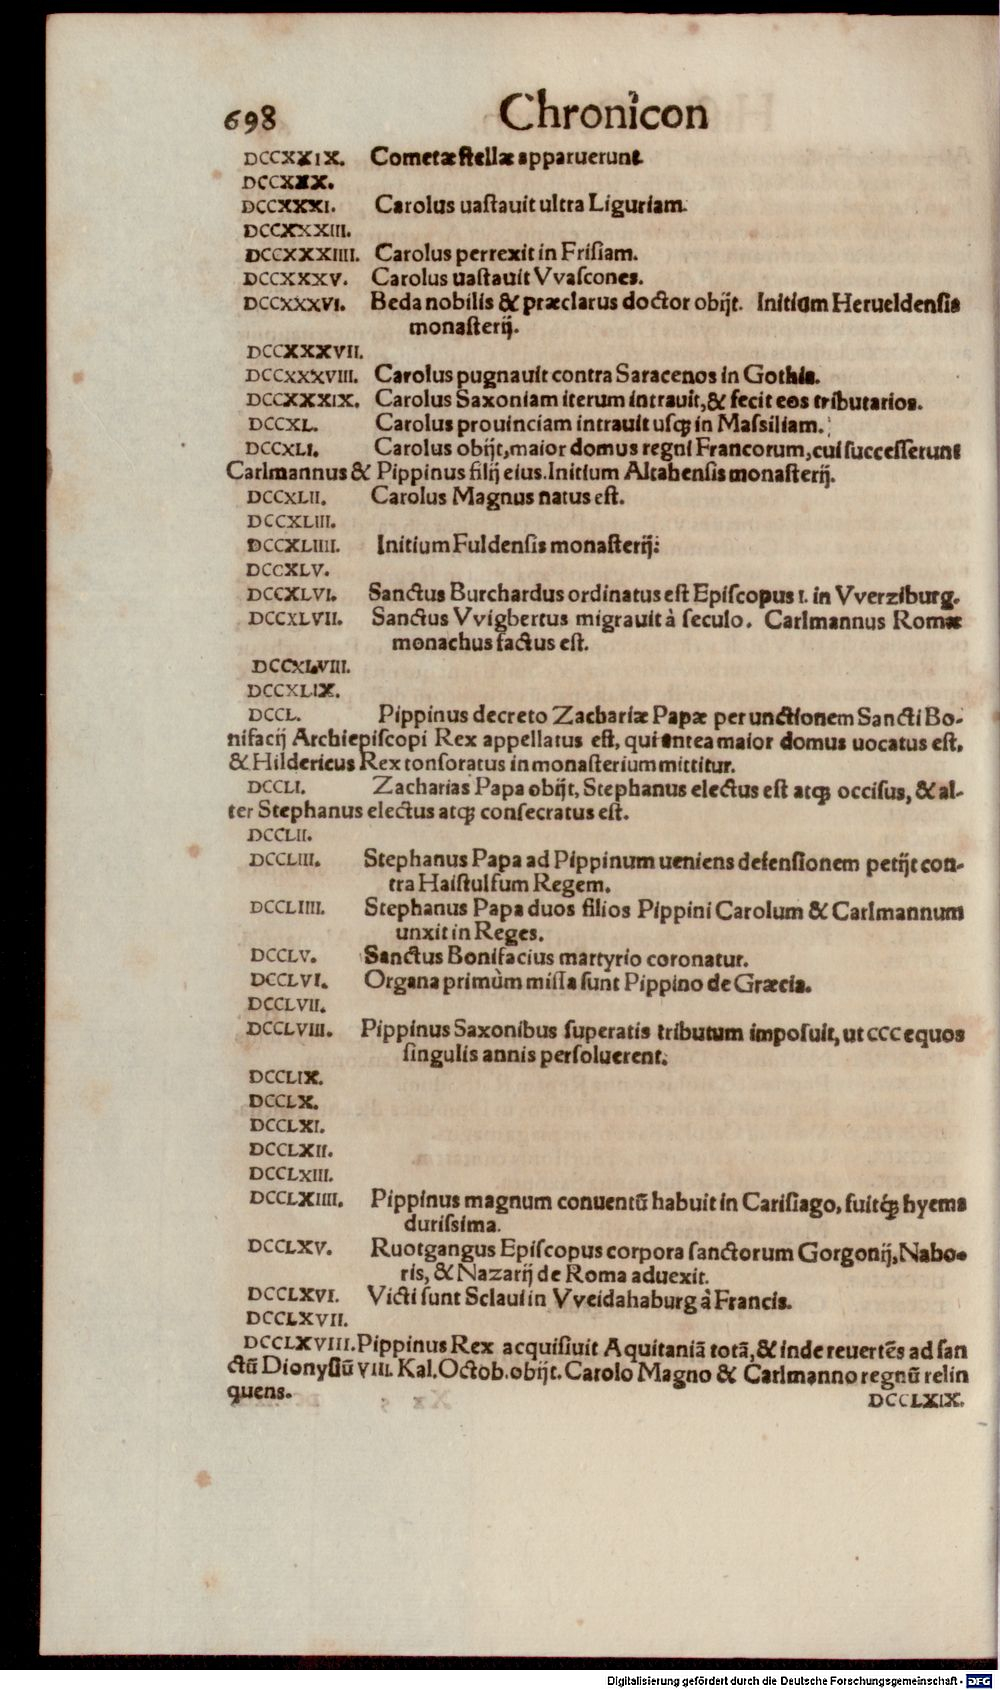 698 Chronicon
DCCXXIX. Cometæ ſtellæ apparuerunt
DCCXXX.
DCCXXXI. Carolus uaſtauit ultra Liguriam.
DCCXXXIII.
DCCXXXIIII. Carolus perrexit in Friſiam.
DCCXXXV. Carolus uaſtauit Vvaſcones.
DCCXXXVI. Beda nobilis & præclarus doctor obijt. Initium Herueldenſis
monaſterij.
DCCXXXVII.
DCCXXXVIII. Carolus pugnauit contra Saracenos in Gothia.
DCCXXXIX. Carolus Saxoniam iterum intrauit, & fecit eos tributarios.
DCCXL. Carolus prouinciam intrauit uſq; in Maſsiliam.
DCCXLI. Carolus obijt, maior domus regni Francorum, cui ſucceſſerunt
Carlmannus & Pippinus filij eius. Initium Altahenſis monaſterij.
DCCXLII. Carolus Magnus natus eſt.
DCCXLIII.
DCCXLIIII. Initium Fuldenſis monaſterij:
DCCXLV.
DCCXLVI. Sanctus Burchardus ordinatus eſt Epiſcopus I. in Vverziburg.
DCCXLVII. Sanctus Vvigbertus migrauit à ſeculo. Carlmannus Romæ
monachus factus eſt.
DCCXLVIII.
DCCXLIX.
DCCL. Pippinus decreto Zachariæ Papæ per unctionem Sancti Bo-
nifacij Archiepiſcopi Rex appellatus eſt, qui antea maior domus uocatus eſt,
& Hildericus Rex tonſoratus in monaſterium mittitur.
DCCLI. Zacharias Papa obijt, Stephanus electus eſt atq; occiſus, & al-
ter Stephanus electus atq; conſecratus eſt.
DCCLII.
DCCLIII. Stephanus Papa ad Pippinum ueniens defenſionem petijt con-
tra Haiſtulfum Regem.
DCCLIIII. Stephanus Papa duos filios Pippini Carolum & Carlmannum
unxit in Reges.
DCCLV. Sanctus Bonifacius martyrio coronatur.
DCCLVI. Organa primùm miſſa ſunt Pippino de Græcia.
DCCLVII.
DCCLVIII. Pippinus Saxonibus ſuperatis tributum impoſuit, ut CCC equos
ſingulis annis perſoluerent.
DCCLIX.
DCCLX.
DCCLXI.
DCCLXII.
DCCLXIII.
DCCLXIIII. Pippinus magnum conuentũ habuit in Cariſiago, fuitq́; hyems
duriſsima.
DCCLXV. Ruotgangus Epiſcopus corpora ſanctorum Gorgonij, Nabo-
ris, & Nazarij de Roma aduexit.
DCCLXVI. Victi ſunt Sclaui in Vveidahaburg à Francis.
DCCLXVII.
DCCLXVIII. Pippinus Rex acquiſiuit Aquitaniã totã, & inde reuertẽs ad ſan
ctũ Dionyſiũ VIII. Kal. Octob. obijt. Carolo Magno & Carlmanno regnũ relin
quens.
DCCLXIX.
Digitalisierung gefördert durch die Deutsche Forschungsgemeinschaft - DFG